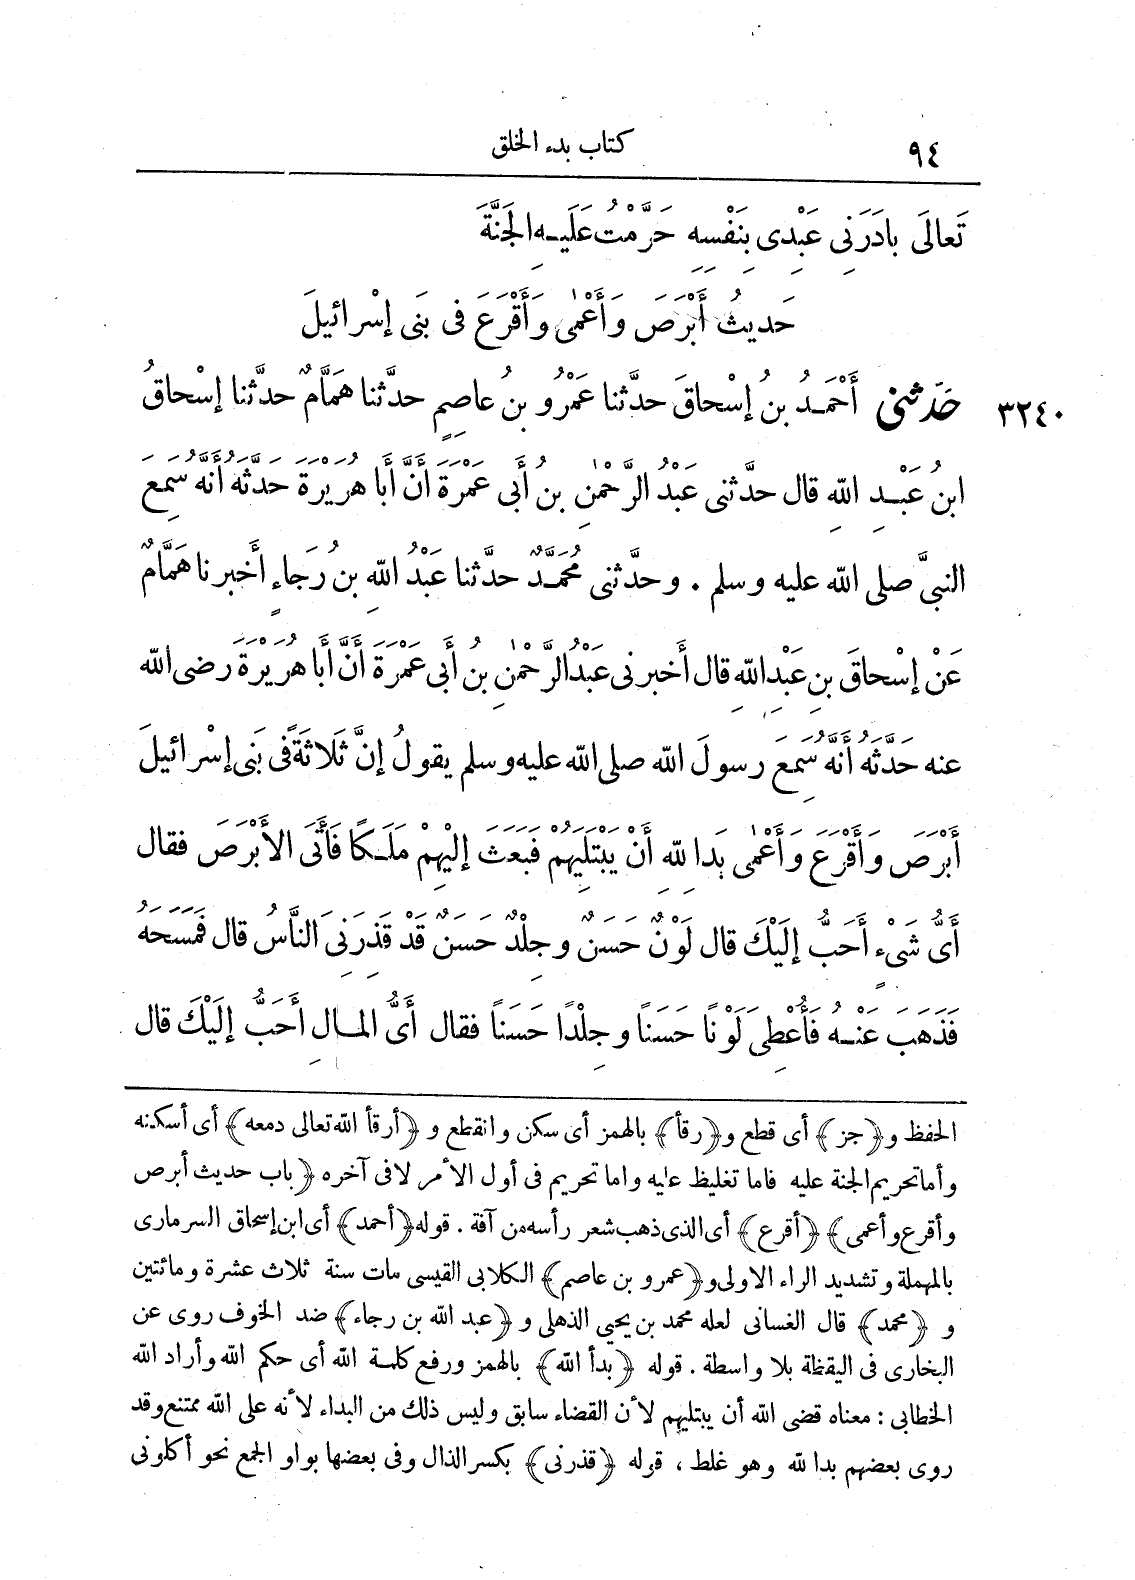 ٩٤
كتاب بدء الخلق
تَعالَى بادَرَنِى عَبْدِى بِنَفْسِهِ حَرَّمْتُ عَلَيْهِ الجَنَّةَ
حَدِيثُ أَبْرَصَ وَأَعْمٰى وَأَقْرَعَ فى بَنى إسْرائيلَ
٣٢٤٠ حَدَّثَنى أَحْمَدُ بنُ إسْحاقَ حدَّثنا عَمْرُو بنُ عاصِمٍ حدَّثنا هَمَّامٌ حدَّثنا إسْحاقُ
ابنُ عَبْدِ اللهِ قال حدَّثنى عَبْدُ الرَّحْمٰنِ بنُ أَبى عَمْرَةَ أَنَّ أَبا هُرَيْرَةَ حَدَّثَهُ أَنَّهُ سَمِعَ
النبىَّ صلى الله عليه وسلم . وحدَّثنى مُحَمَّدٌ حدَّثنا عَبْدُ اللهِ بنُ رَجاءٍ أَخبرنا هَمَّامٌ
عَنْ إسْحاقَ بنِ عَبْدِ اللهِ قال أَخبرنى عَبْدُ الرَّحْمٰنِ بنُ أَبى عَمْرَةَ أَنَّ أَبا هُرَيْرَةَ رضى الله
عنه حَدَّثَهُ أَنَّهُ سَمِعَ رسولَ الله صلى الله عليه وسلم يقولُ إنَّ ثَلاثَةً فى بَنى إسْرائيلَ
أَبْرَصَ وَأَقْرَعَ وَأَعْمٰى بَدا لِلّهِ أَنْ يَبْتَلِيَهُمْ فَبَعَثَ إِلَيْهِمْ مَلَكًا فَأَتَى الأَبْرَصَ فقال
أَىُّ شَىْءٍ أَحَبُّ إلَيْكَ قال لَوْنٌ حَسَنٌ وجِلْدٌ حَسَنٌ قَدْ قَذِرَنِىَ النَّاسُ قال فَمَسَحَهُ
فَذَهَبَ عَنْهُ فَأُعْطِىَ لَوْنًا حَسَنًا وجِلْدًا حَسَنًا فقال أَىُّ المالِ أَحَبُّ إلَيْكَ قال
الحفظ و ﴿جز﴾ أى قطع و ﴿رقأ﴾ بالهمز أى سكن وانقطع و ﴿أرقأ الله تعالى دمعه﴾ أى أسكنه
وأما تحريم الجنة عليه فاما تغليظ عليه واما تحريم فى أول الأمر لا فى آخره ﴿باب حديث أبرص
وأقرع وأعمى﴾ ﴿أقرع﴾ أى الذى ذهب شعر رأسه من آفة . قوله ﴿أحمد﴾ أى ابن إسحاق السرمارى
بالمهملة وتشديد الراء الاولى و ﴿عمرو بن عاصم﴾ الكلابى القيسى مات سنة ثلاث عشرة ومائتين
و ﴿محمد﴾ قال الغسانى لعله محمد بن يحيى الذهلى و ﴿عبد الله بن رجاء﴾ ضد الخوف روى عن
البخارى فى اليقظة بلا واسطة . قوله ﴿بدأ الله﴾ بالهمز ورفع كلمة الله أى حكم الله وأراد الله
الخطابى : معناه قضى الله أن يبتليهم لأن القضاء سابق وليس ذلك من البداء لأنه على الله ممتنع وقد
روى بعضهم بدا لله وهو غلط ، قوله ﴿قذرنى﴾ بكسر الذال وفى بعضها بواو الجمع نحو أكلونى